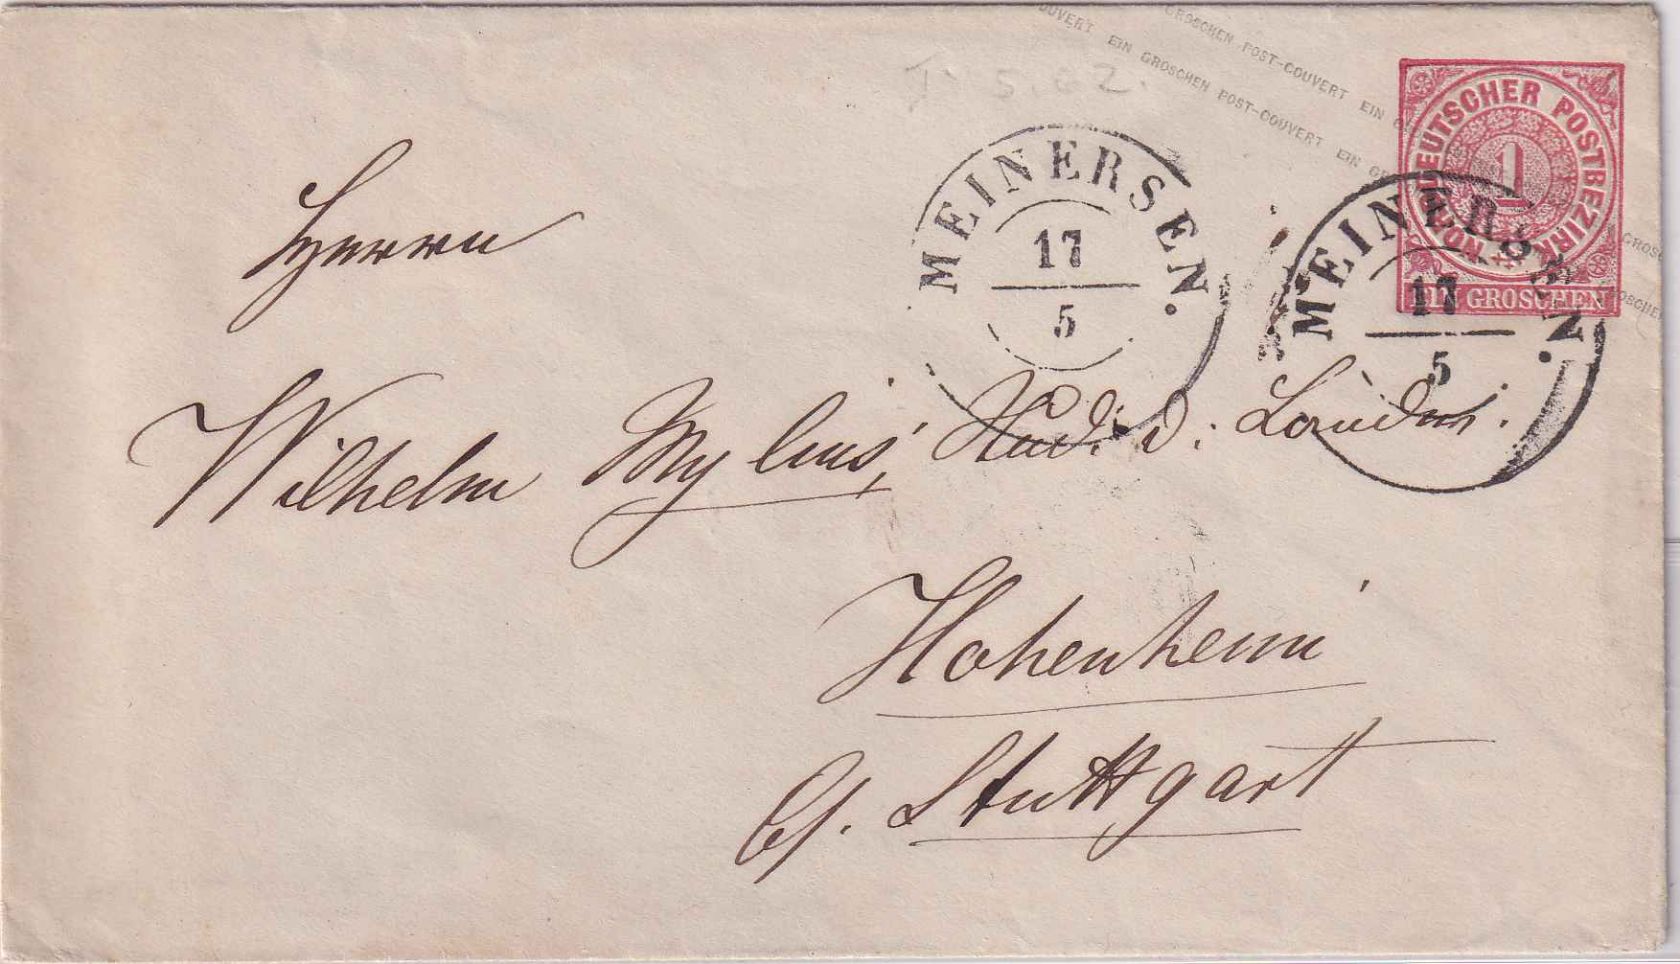 EIN GROSCHEN POST-COUVERT EIN
GROSCHEN POST-COUVERT EIN
NORDDEUTSCHER POSTBEZIRK
1
EIN GROSCHEN
MEINERSEN.
17
5
MEINERSEN.
17
5
Herrn
Wilhelm Mylius, Stud. d. Landw.
Hohenheim
b/. Stuttgart